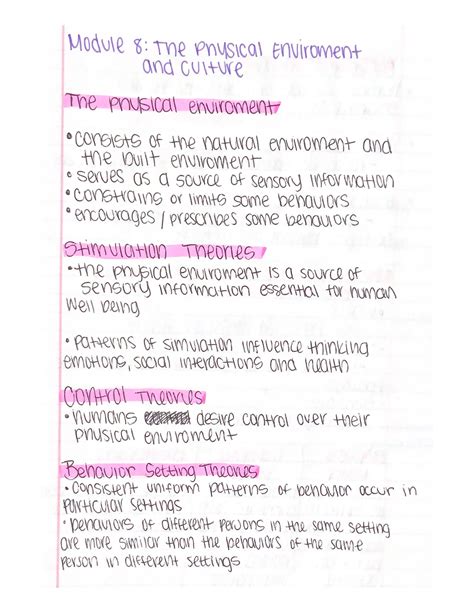 Module 8: The Physical Enviroment
and Culture
The physical enviroment
• consists of the natural enviroment and
the built enviroment
• serves as a source of sensory information
• constrains or limits some behaviors
• encourages / prescribes some behaviors
Stimulation Theories
• the physical enviroment is a source of
sensory information essential for human
well being
• patterns of simulation influence thinking
emotions, social interactions and health
Control Theories
• humans desire control over their
physical enviroment
Behavior Setting Theories
• Consistent uniform patterns of behavior occur in
particular settings
• Behaviors of different persons in the same setting
are more similar than the behaviors of the same
person in different settings